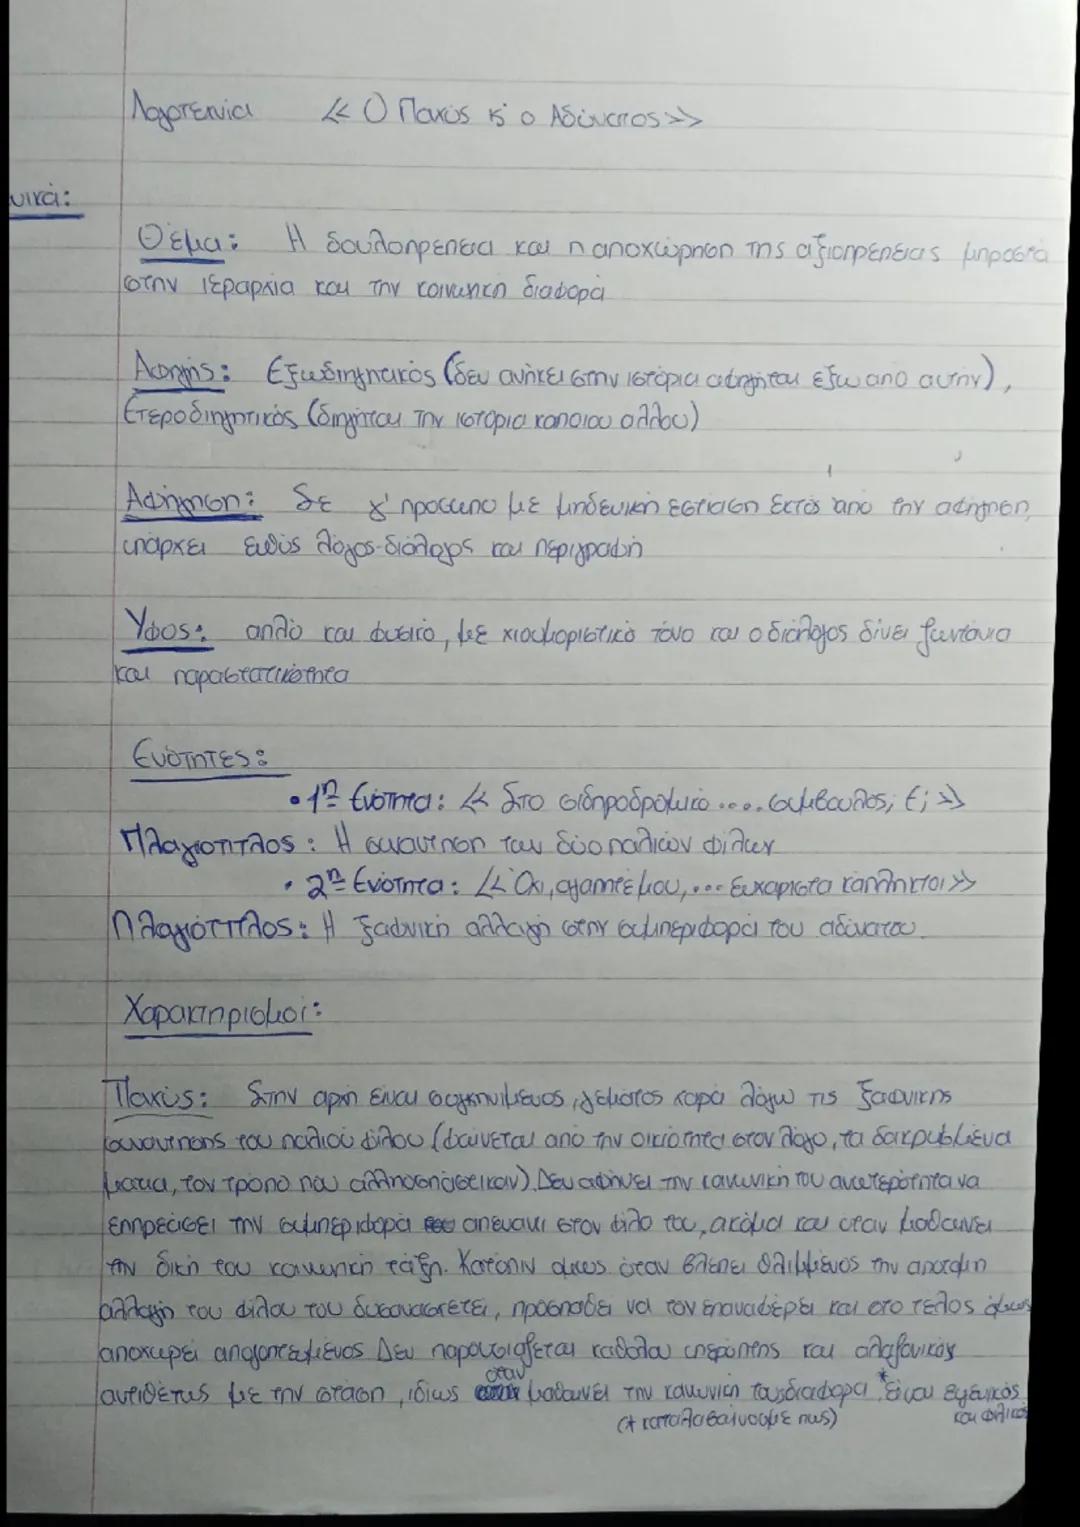 Λογοτεχνία « Ο Παχύς κ' ο Αδύνατος»
νικά:
Θέμα: Η δουλοπρέπεια και η αποχώρηση της αξιοπρέπειας μπροστά
στην ιεραρχία και την κοινωνική διαφορά
Αφηγητής: Εξωδιηγητικός (δεν ανήκει στην ιστορία αφηγήται έξω από αυτήν),
Ετεροδιηγητικός (διηγήται την ιστορία κάποιου άλλου)
Αφήγηση: Σε γ' πρόσωπο με μηδενική εστίαση Εκτός από την αφήγηση,
υπάρχει ευθύς λόγος-διάλογος και περιγραφή
Ύφος: απλό και φυσικό, με χιουμοριστικό τόνο και ο διάλογος δίνει ζωντάνια
και παραστατικότητα
Ενότητες:
• 1η Ενότητα: « Στο σιδηροδρομικό .... σύμβουλος; Ε; »
Πλαγιότιτλος: Η συνάντηση των δύο παλιών φίλων
• 2η Ενότητα: « Όχι, αγαπητέ μου,... ευχάριστα κατάπληκτοι »
Πλαγιότιτλος: Η ξαφνική αλλαγή στην συμπεριφορά του αδύνατου
Χαρακτηρισμοί:
Παχύς: Στην αρχή είναι συγκινημένος, γεμάτος χαρά λόγω της ξαφνικής
συνάντησης του παλιού φίλου (φαίνεται από την οικιότητα στον λόγο, τα δακρυσμένα
μάτια, τον τρόπο που αλληλοσπάστηκαν). Δεν αφήνει την κοινωνική του ανωτερότητα να
επηρεάσει την συμπεριφορά απέναντι στον φίλο του, ακόμα και όταν μαθαίνει
την δική του κοινωνική τάξη. Κατόπιν όμως όταν βλέπει θλιμμένος την απότομη
αλλαγή του φίλου του δυσανασχετεί, προσπαθεί να τον επαναφέρει και στο τέλος όμως
αποχωρεί απογοητευμένος Δεν παρουσιάζεται καθόλου υπερόπτης και αλαζονικός
αντιθέτως με την στάση, ιδίως όταν μαθαίνει την κοινωνική τους διαφορά *είναι ευγενικός
(* καταλαβαίνουμε πως) και φιλικός